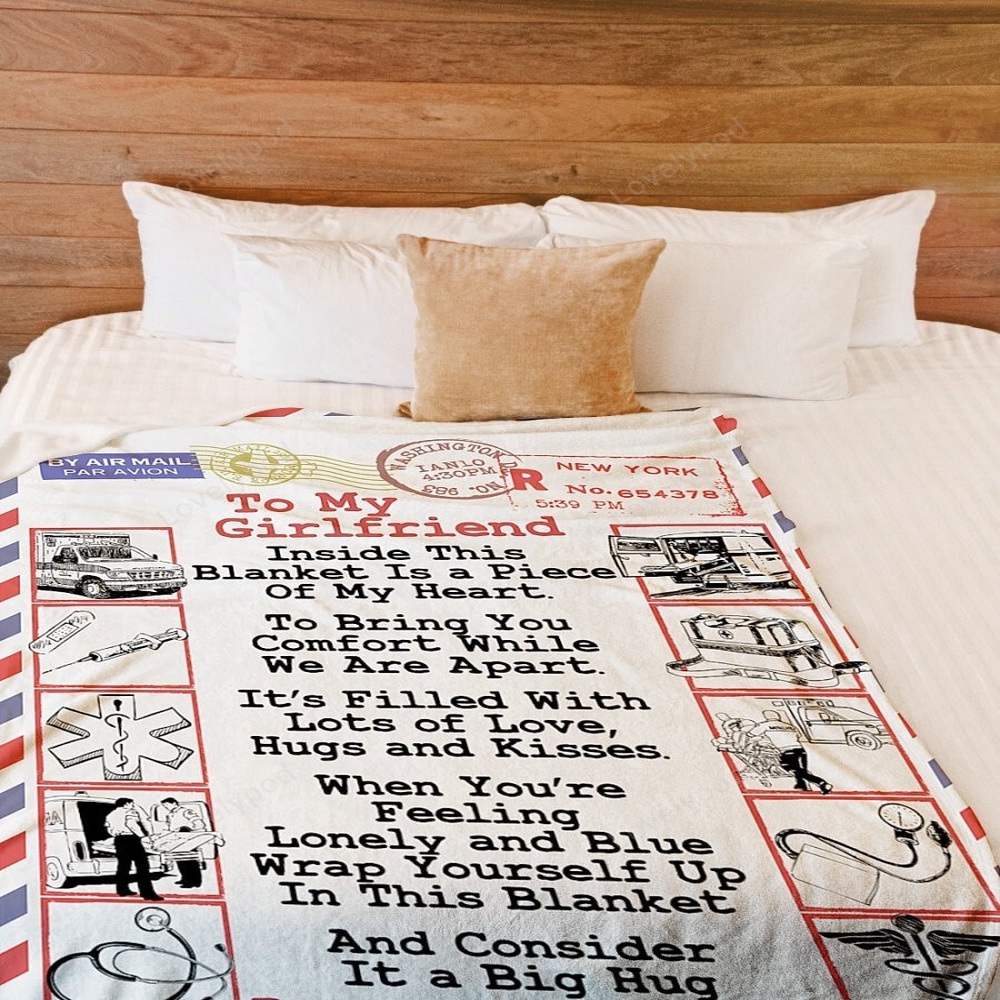 Lovelypod
Lovelypod
BY AIR MAIL
PAR AVION
WASHINGTON D.
JAN 10
4:30PM
NO. 983
R
NEW YORK
No. 654378
5:39 PM
To My
Girlfriend
Inside This
Blanket Is a Piece
Of My Heart.
To Bring You
Comfort While
We Are Apart.
It's Filled With
Lots of Love,
Hugs and Kisses.
When You're
Feeling
Lonely and Blue
Wrap Yourself Up
In This Blanket
And Consider
It a Big Hug